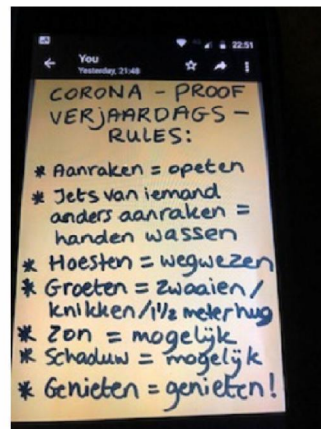 22:51
You
Yesterday, 21:48
CORONA - PROOF
VERjAARDAGS -
RULES:
* Aanraken = opeten
* Iets van iemand
anders aanraken =
handen wassen
* Hoesten = wegwezen
* Groeten = zwaaien/
knikken/1½ meter hug
* Zon = mogelijk
* Schaduw = mogelijk
* Genieten = genieten!